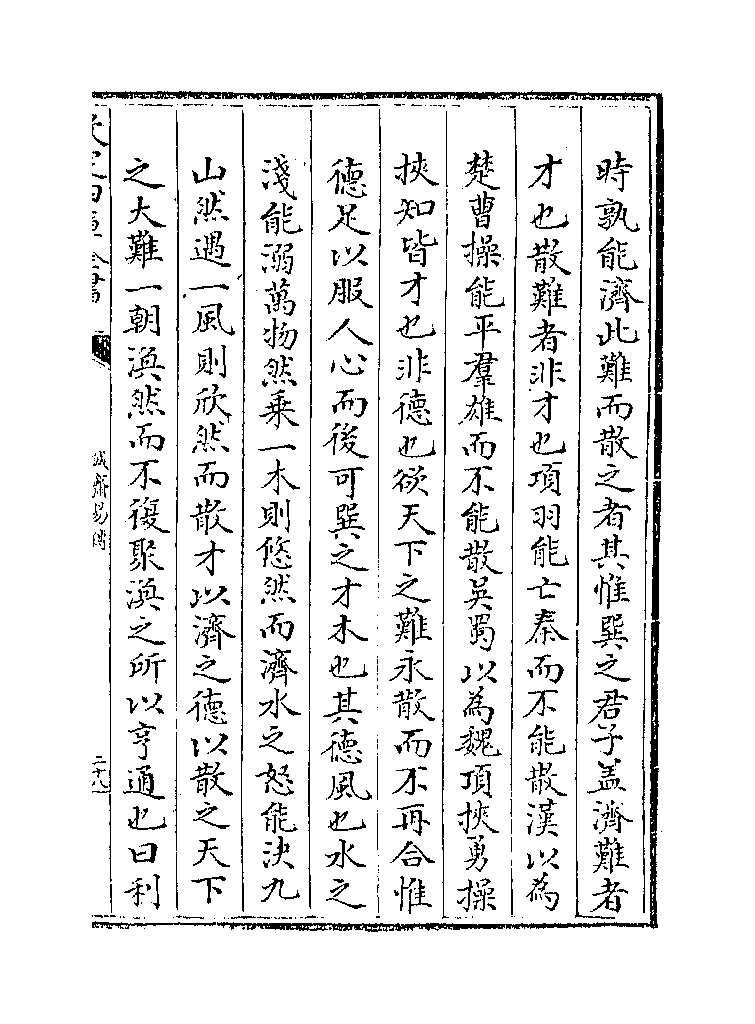 時孰能濟此難而散之者其惟巽之君子盖濟難者
才也散難者非才也項羽能亡秦而不能散漢以為
楚曹操能平羣雄而不能散吳蜀以為魏項挾勇操
挾知皆才也非德也欲天下之難永散而不再合惟
德足以服人心而後可巽之才木也其德風也水之
淺能溺萬物然乗一木則悠然而濟水之怒能決九
山然遇一風則欣然而散才以濟之德以散之天下
之大難一朝渙然而不復聚渙之所以亨通也曰利
欽定四庫全書
誠齋易傳
二十八